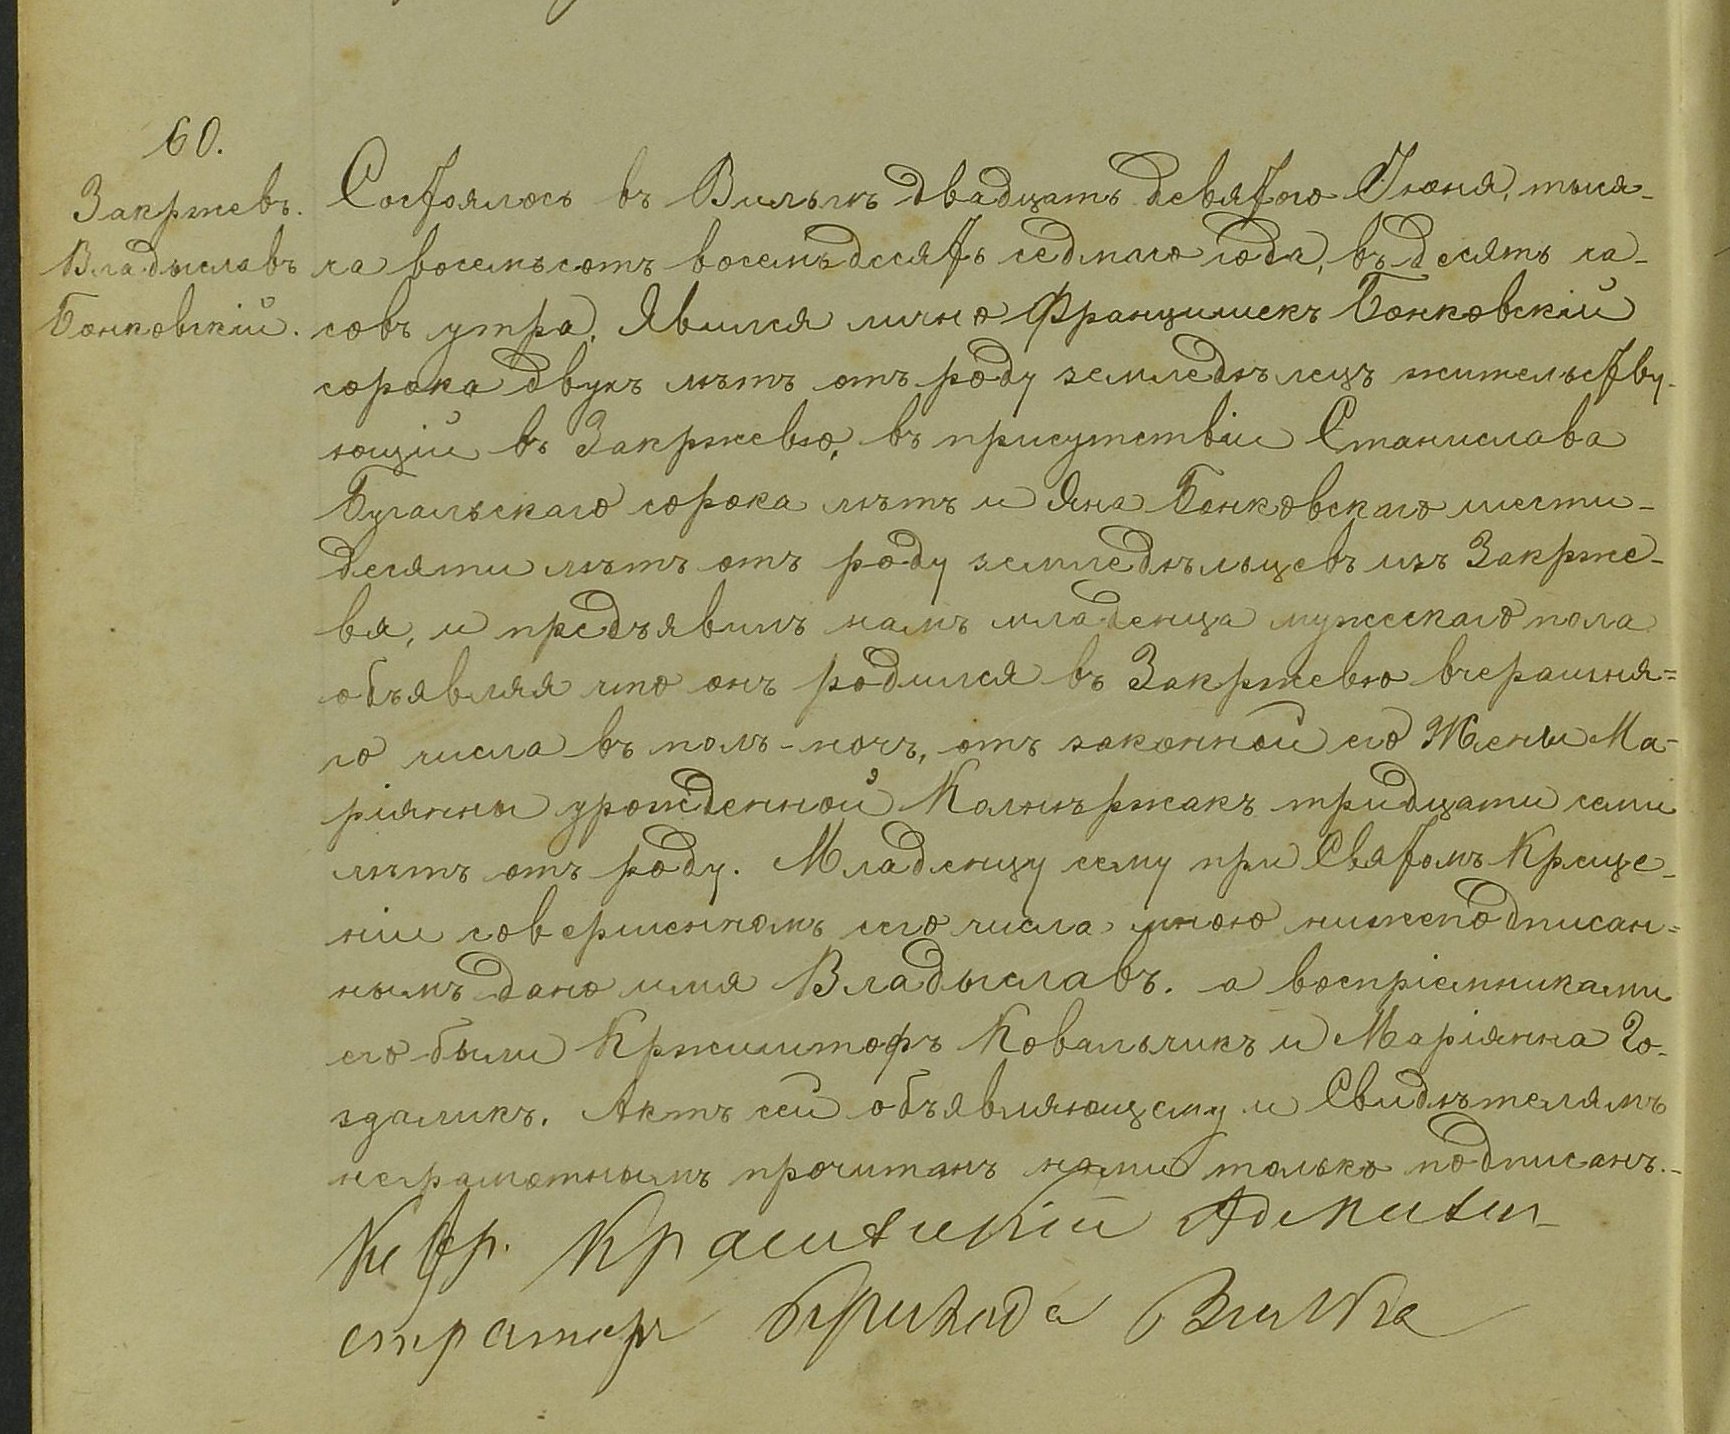 60.
Закржевъ.
Владыславъ
Бонковскій.
Состоялось въ Вильгѣ двадцать девятого Іюня, тыся-
ча восемьсотъ восемьдесятъ седмаго года, въ десять ча-
совъ утра. Явился лично Францишекъ Бонковскій
сорока двухъ лѣтъ отъ роду земледѣлецъ жительству-
ющій въ Закржевю, въ присутствіи Станислава
Бугальскаго сорока лѣтъ и Яна Бонковскаго шести-
десяти лѣтъ отъ роду земледѣльцевъ изъ Закрже-
вя, и предъявилъ намъ младенца мужескаго пола
объявляя что онъ родился въ Закржевю вчерашня-
го числа въ полъ-ночъ, отъ законной его Жены Ма-
ріянны урожденной тридцати семи
лѣтъ отъ роду. Младенцу сему при Святомъ Креще-
ніи совершенномъ сего числа мною нижеподписан-
нымъ дано имя Владыславъ. а воспріемниками
его были Кржиштофъ Ковальчикъ и Маріянна Го-
здаликъ. Актъ сей объявляющему и Свидѣтелямъ
неграмотнымъ прочитанъ нами только подписанъ.-
Админи-
страторъ Прихода Вилька